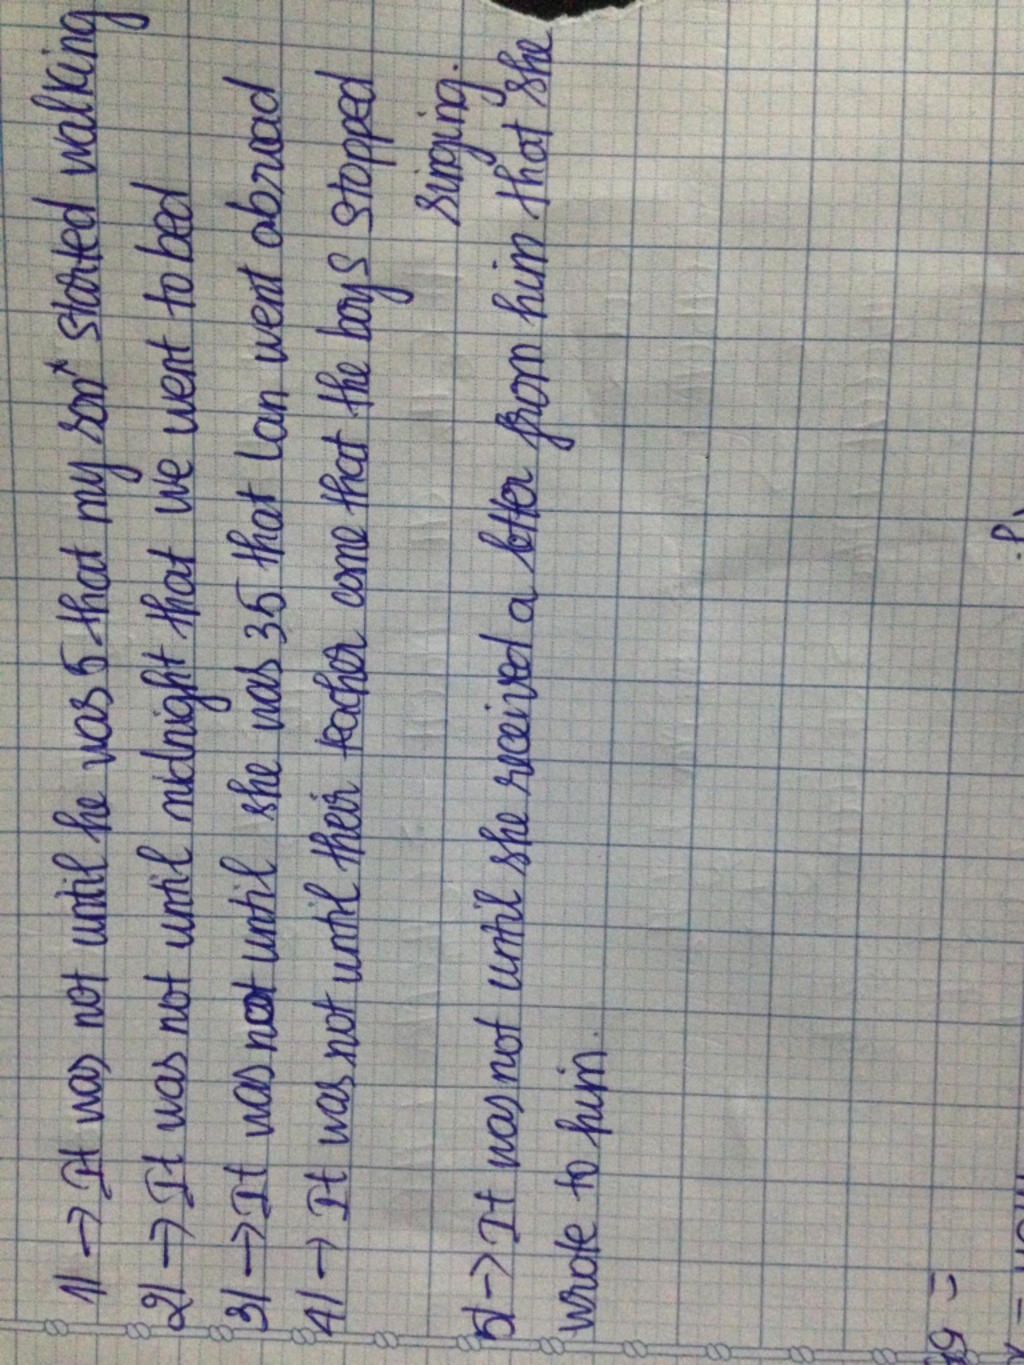 1) → It was not until he was 5 that my son started walking
2) → It was not until midnight that we went to bed
3) → It was not until she was 35 that Lan went abroad
4) → It was not until their teacher come that the boys stopped
singing.
5) → It was not until she received a letter from him that she
wrote to him.